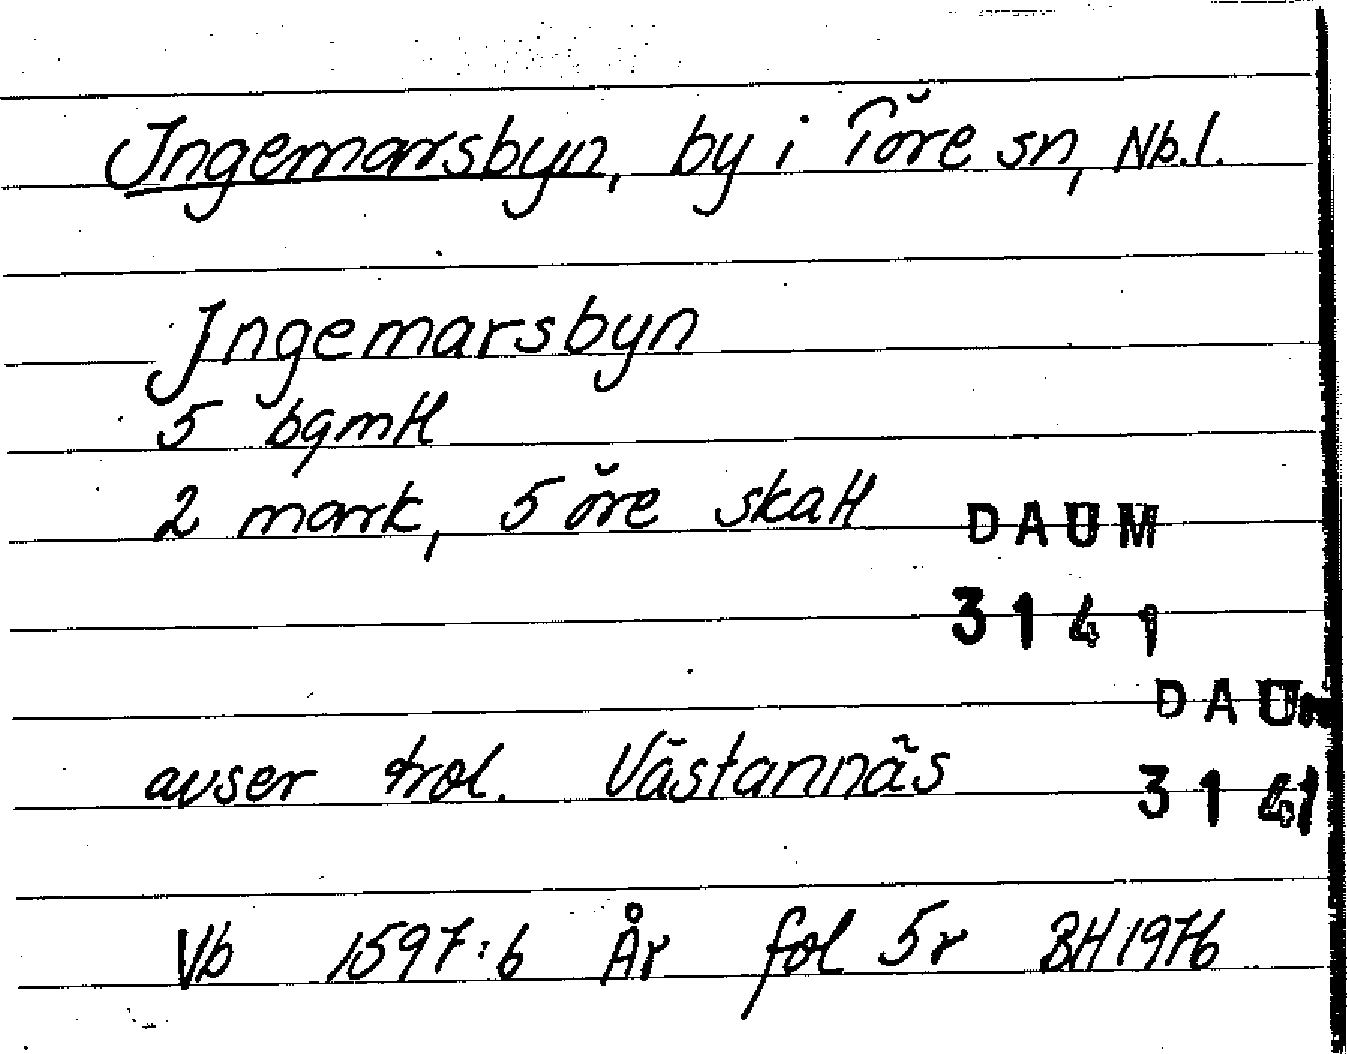 Ingemarsbyn, by i Töre sn, Nb.l.
Ingemarsbyn
5 bgmtl
2 mark, 5 öre skatt
DAUM
3141
DAUM
avser trol. Västannäs
3141
Vb 1597:6 År fol 5r BH 1976